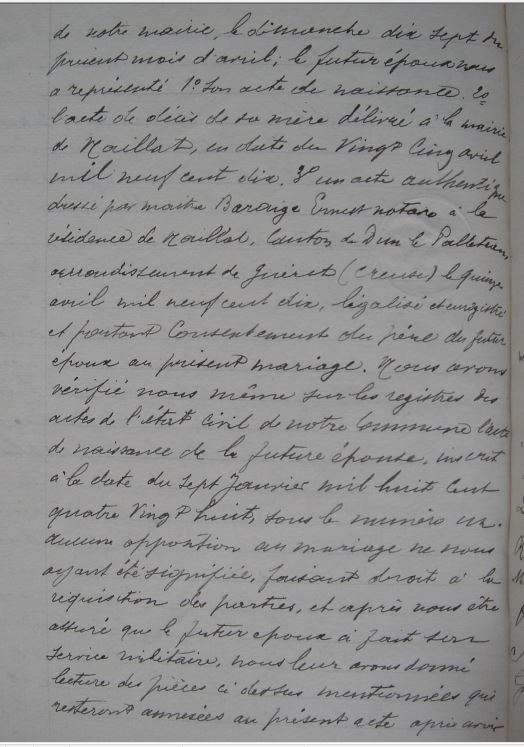 de notre mairie, le dimanche dix sept du
présent mois d'avril; le futur époux nous
a représenté 1º Son acte de naissance. 2º
l'acte de décès de sa mère délivré à la mairie
de Naillat, en date du Vingt Cinq avril
mil neuf cent dix. 3º un acte authentique
dressé par maitre Baraige Ernest notaire à la
résidence de Naillat, Canton de Dun le Palleteau,
arrondissement de Guéret (Creuse) le quinze
avril mil neuf cent dix, légalisé et enregistré
et portant Consentement du père du futur
époux au présent mariage. Nous avons
vérifié nous même sur les registres des
actes de l'état Civil de notre Commune l'acte
de naissance de la future épouse, inscrit
à la date du sept Janvier mil huit Cent
quatre Vingt huit, sous le numéro un.
aucune opposition au mariage ne nous
ayant été signifiée, faisant droit à la
réquisition des parties, et après nous être
assuré que le futur epoux à fait son
service militaire, nous leur avons donné
lecture des pièces ci dessus mentionnées qui
resteront annexées au présent acte après avoir